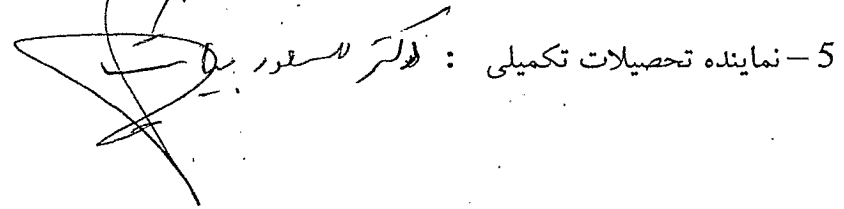 5 – نماینده تحصیلات تکمیلی : دکتر